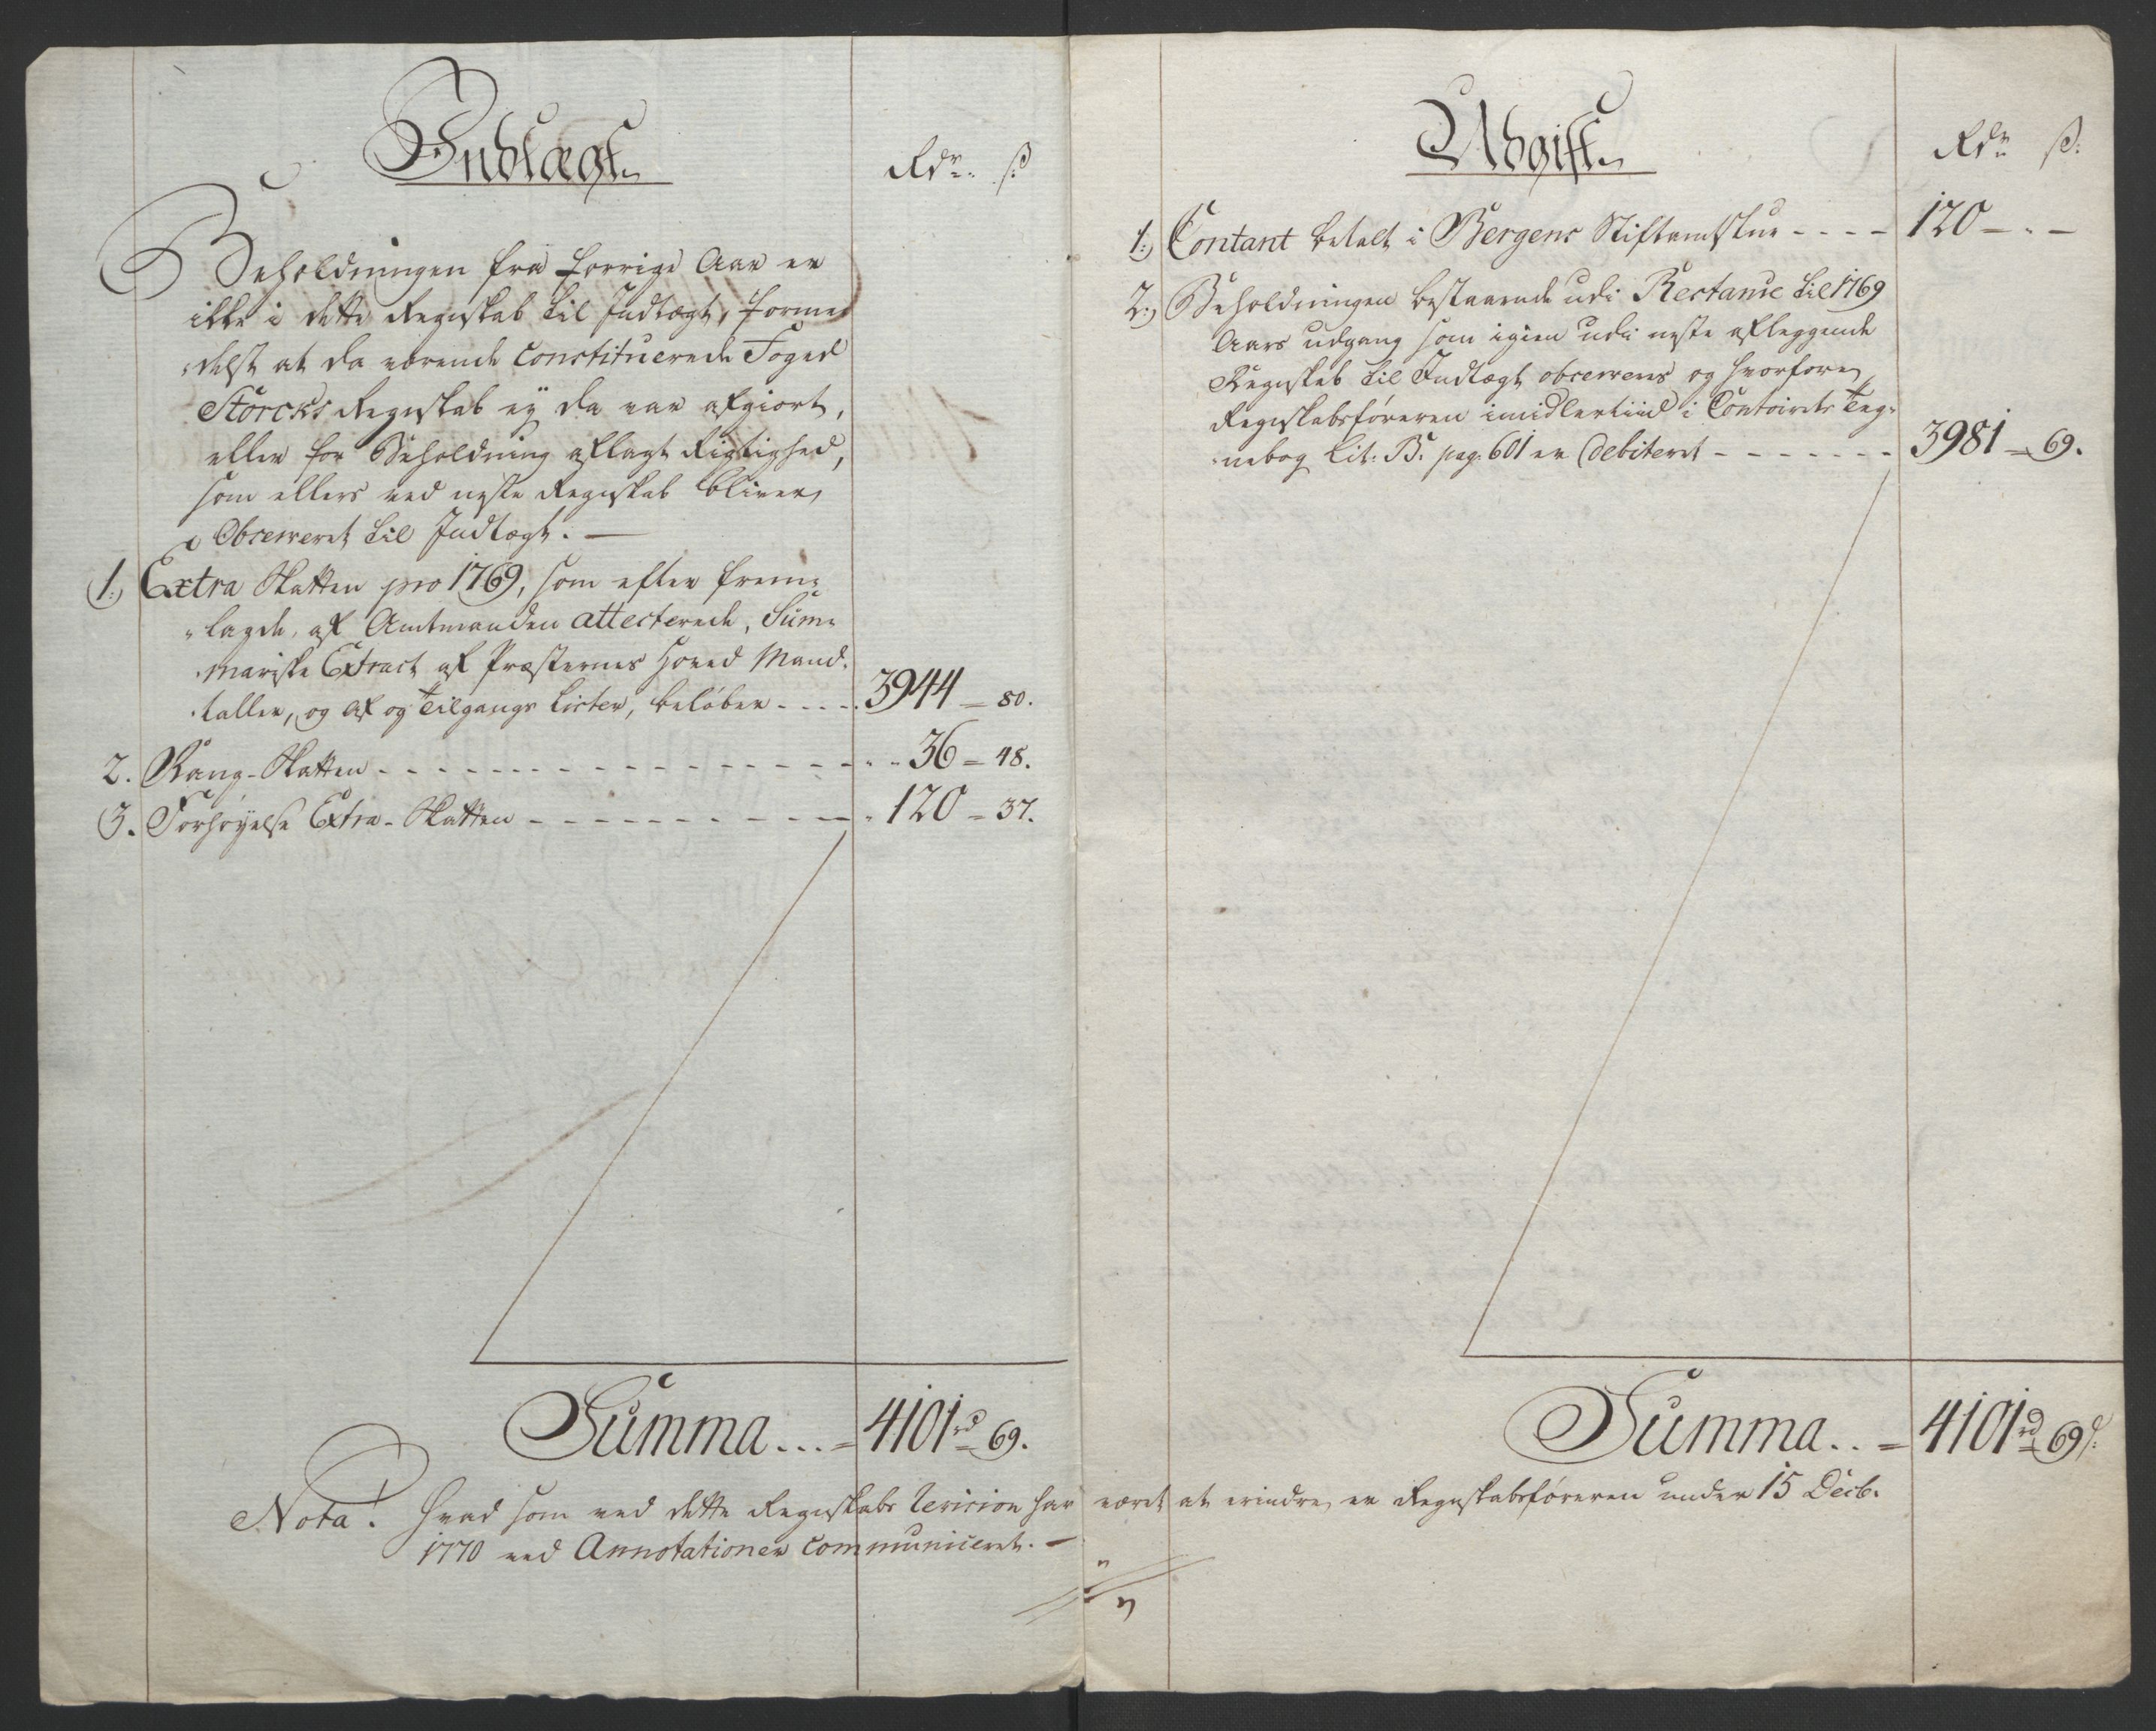 Indtægt
Rdr. ß
Beholdningen fra forrige Aar er
ikke i dette Regnskab til Indtægt, forme-
delst at da værende Constituerede Foged
Storckes Regnskab ej da var afgiort,
eller for Beholdning aflagt Rigtighed,
som ellers ved neste Regnskab bliver
Obcerveret til Indtægt. —
1. Extra Skatten pro 1769, som efter frem-
lagde, af Amtmanden attecterede, Sum-
mariske Extract af Præsternes Hoved Mand-
taller, og Af og Tilgangs Lister, beløber - - - - 3944 - 80.
2. Rang-Skatten - - - - 36 - 48.
3. Forhøyelse Extra-Skatten - - - - 120 - 37.
Summa... = 4101 rd 69.
Udgift
Rdr ß.
1. Contant betalt i Bergens Stiftamtstue - - - - 120 - . -
2. Beholdningen bestaaende udi Restance til 1769
Aars udgang som igien udi neste aflæggende
Regnskab til Indtægt obcerveres og hvorfore
Regnskabsføreren imidlertiid i Contoirets Teg-
nebog Lit: B. pag: 601 er Debiteret - - - - 3981 - 69.
Summa.. = 4101 rd 69 ß.
Nota. Hvad som ved dette Regnskabs Revicion har været at erindre, er Regnskabsføreren under 15 Decb.
1770 ved Annotationer communiceret. —